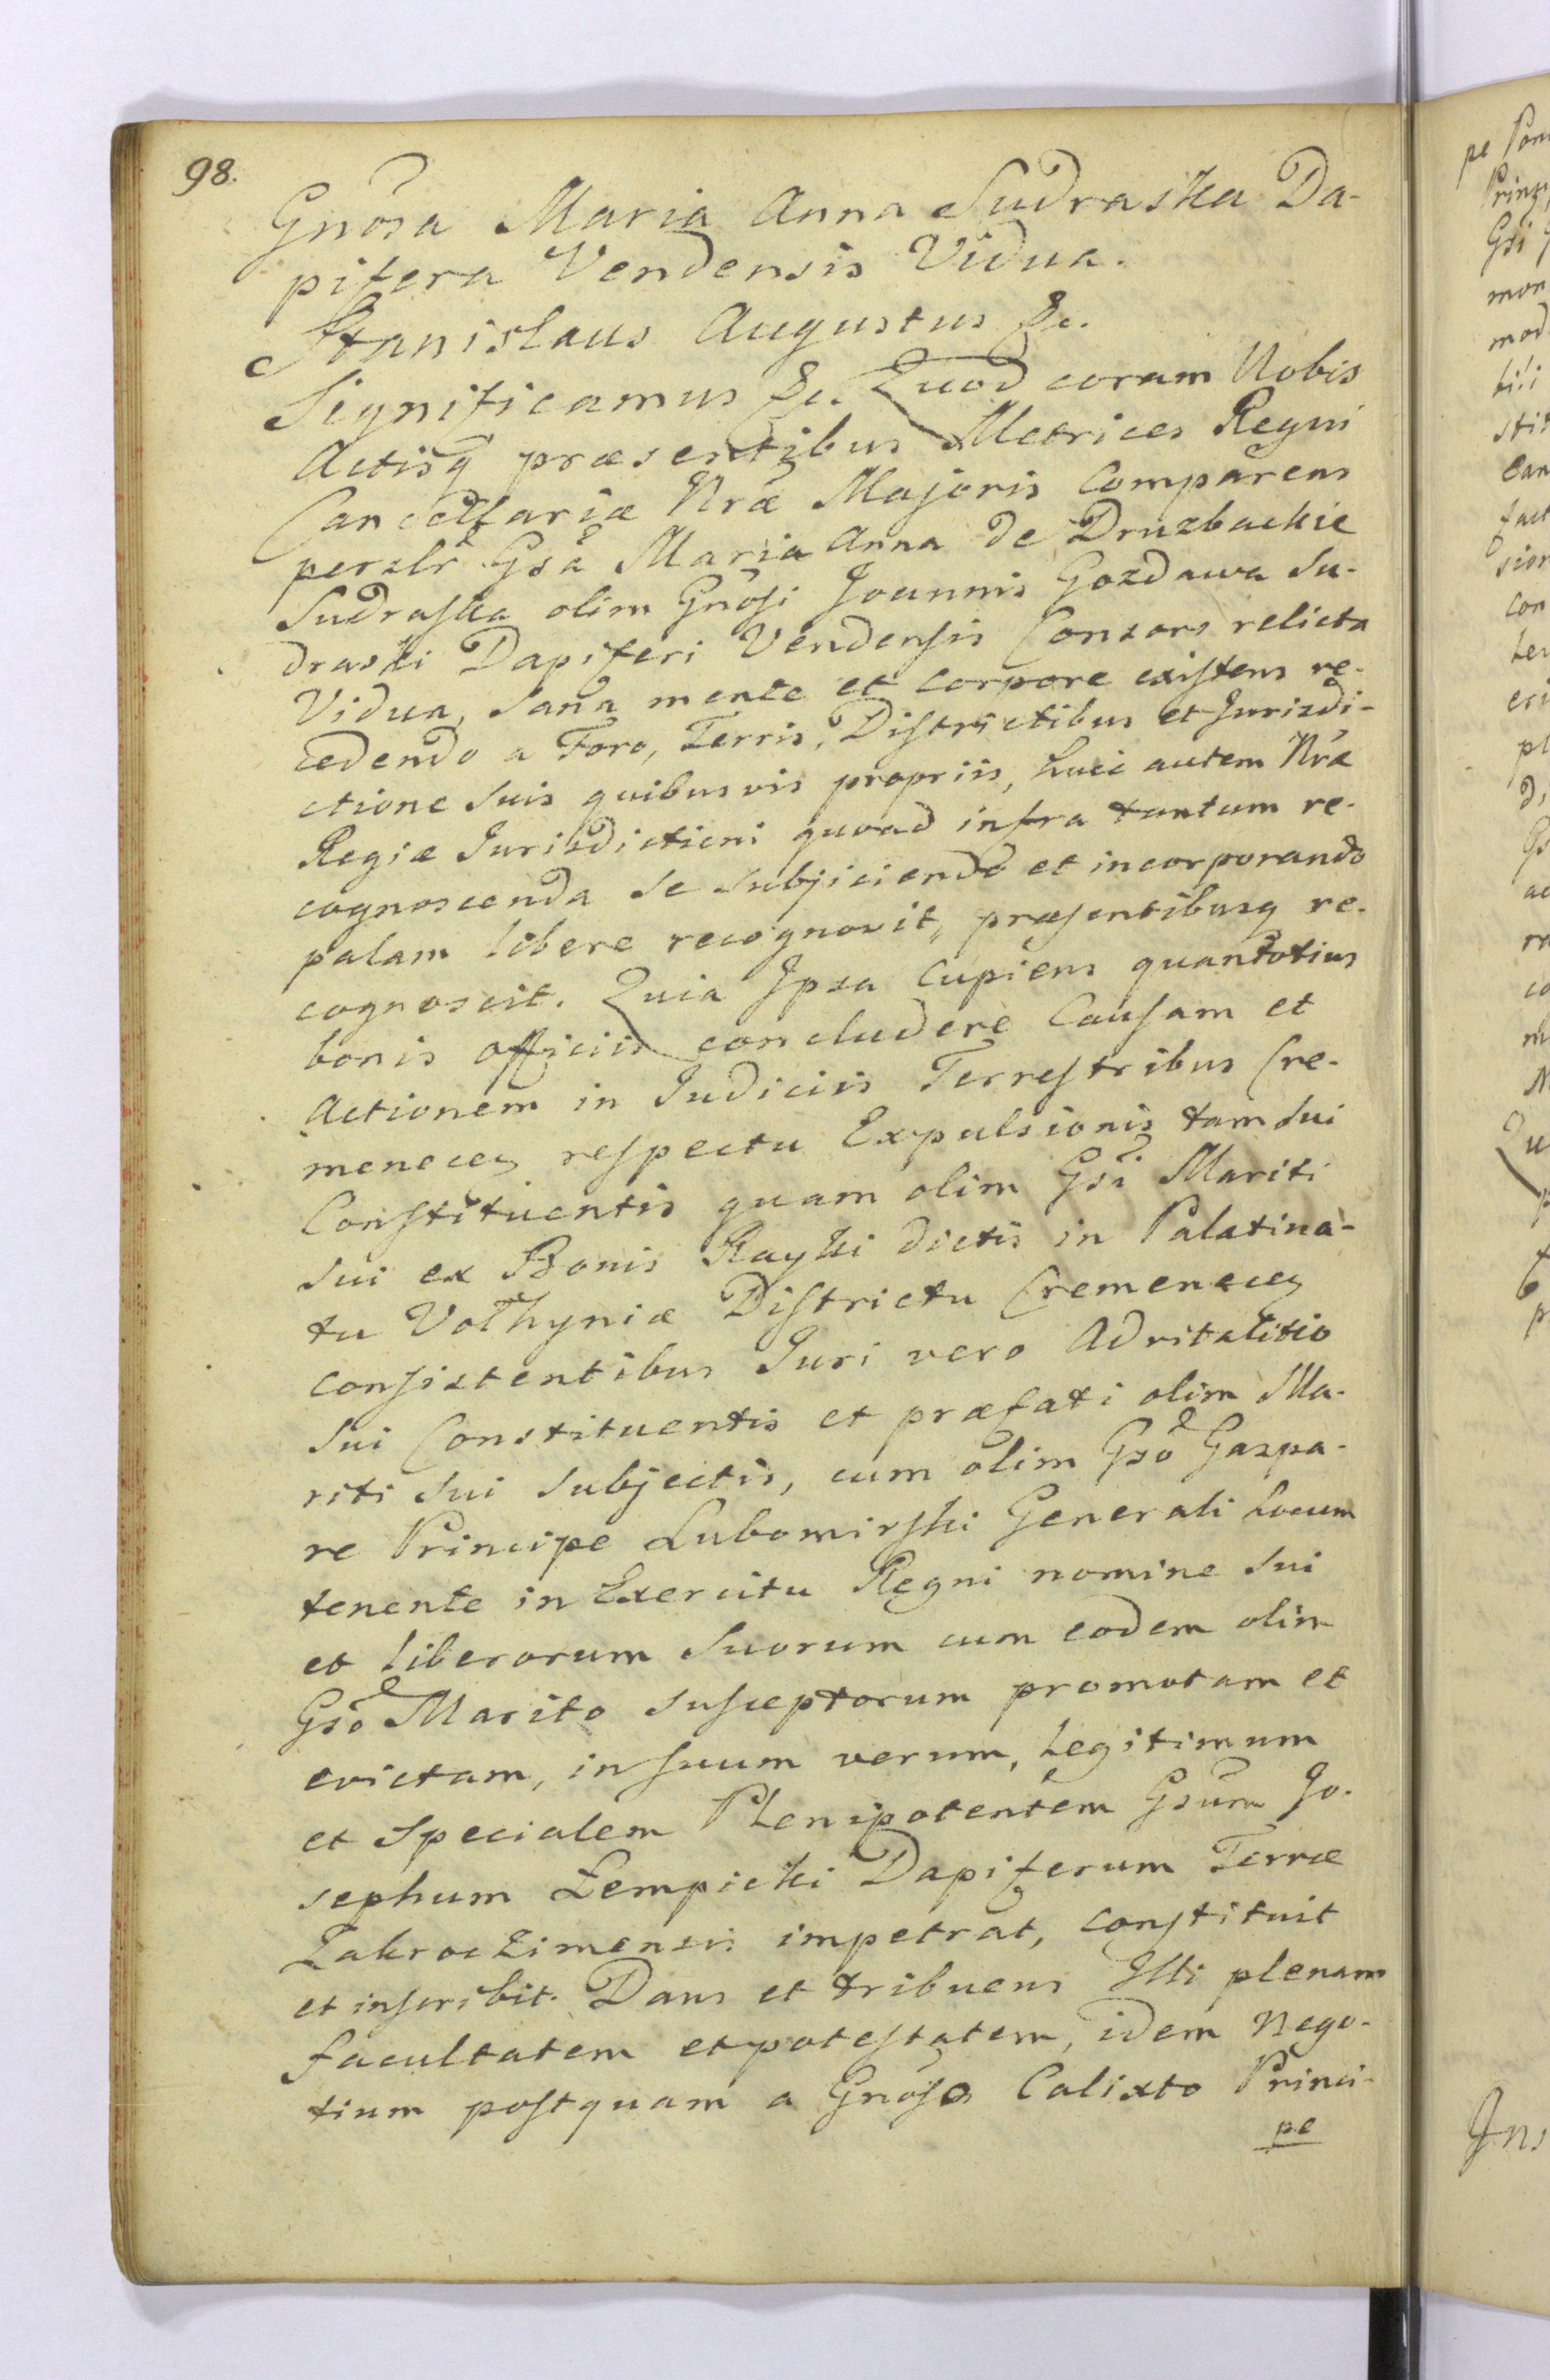 98.
Gnosa Maria Anna Sudraska Da-
pifera Vendensis Vidua.
Stanislaus Augustus &c.
Significamus &c. Quod coram Nobis
Actisq præsentibus Metrices Regni
Cancellariæ Nræ Majoris Comparens
perslr Gsa Maria Anna de Druzbackie
Sudraska olim Gnosi Joannis Gozdawa Su-
draski Dapiferi Vendensis Consors relicta
Vidua, sana mente et corpore existens re-
cedendo a Foro, Terris, Districtibus et Jurisdi-
ctione suis quibusvis propriis, huic autem Nræ
Regiæ Jurisdictioni quoad infra tantum re-
cognoscenda se subjiciendo et incorporando
palam libere recognovit, præsentibusq re-
cognoscit. Quia Ipsa Cupiens quantotius
bonis officiis concludere Causam et
Actionem in Judiciis Terrestribus Cre-
menecen respectu Expulsionis tam sui
Constituentis quam olim Gsi Mariti
sui ex Bonis Rayki dictis in Palatina-
tu Volhyniæ Districtu Cremenecen
consistentibus Juri vero Advitalitio
sui Constituentis et præfati olim Ma-
riti sui subjectis, cum olim Gso Gaspa-
re Principe Lubomirski Generali Locum
tenente in Exercitu Regni nomine sui
et liberorum suorum cum eodem olim
Gso Marito susceptorum promotam et
evictam, in suum verum, legitimum
et specialem Plenipotentem Gsum Jo-
sephum Łempicki Dapiferum Terræ
Zakroczimensis impetrat, constituit
et inscribit. Dans et tribuens Illi plenam
facultatem et potestatem, idem nego-
tium postquam a Gnoso Calixto Princi-
pe